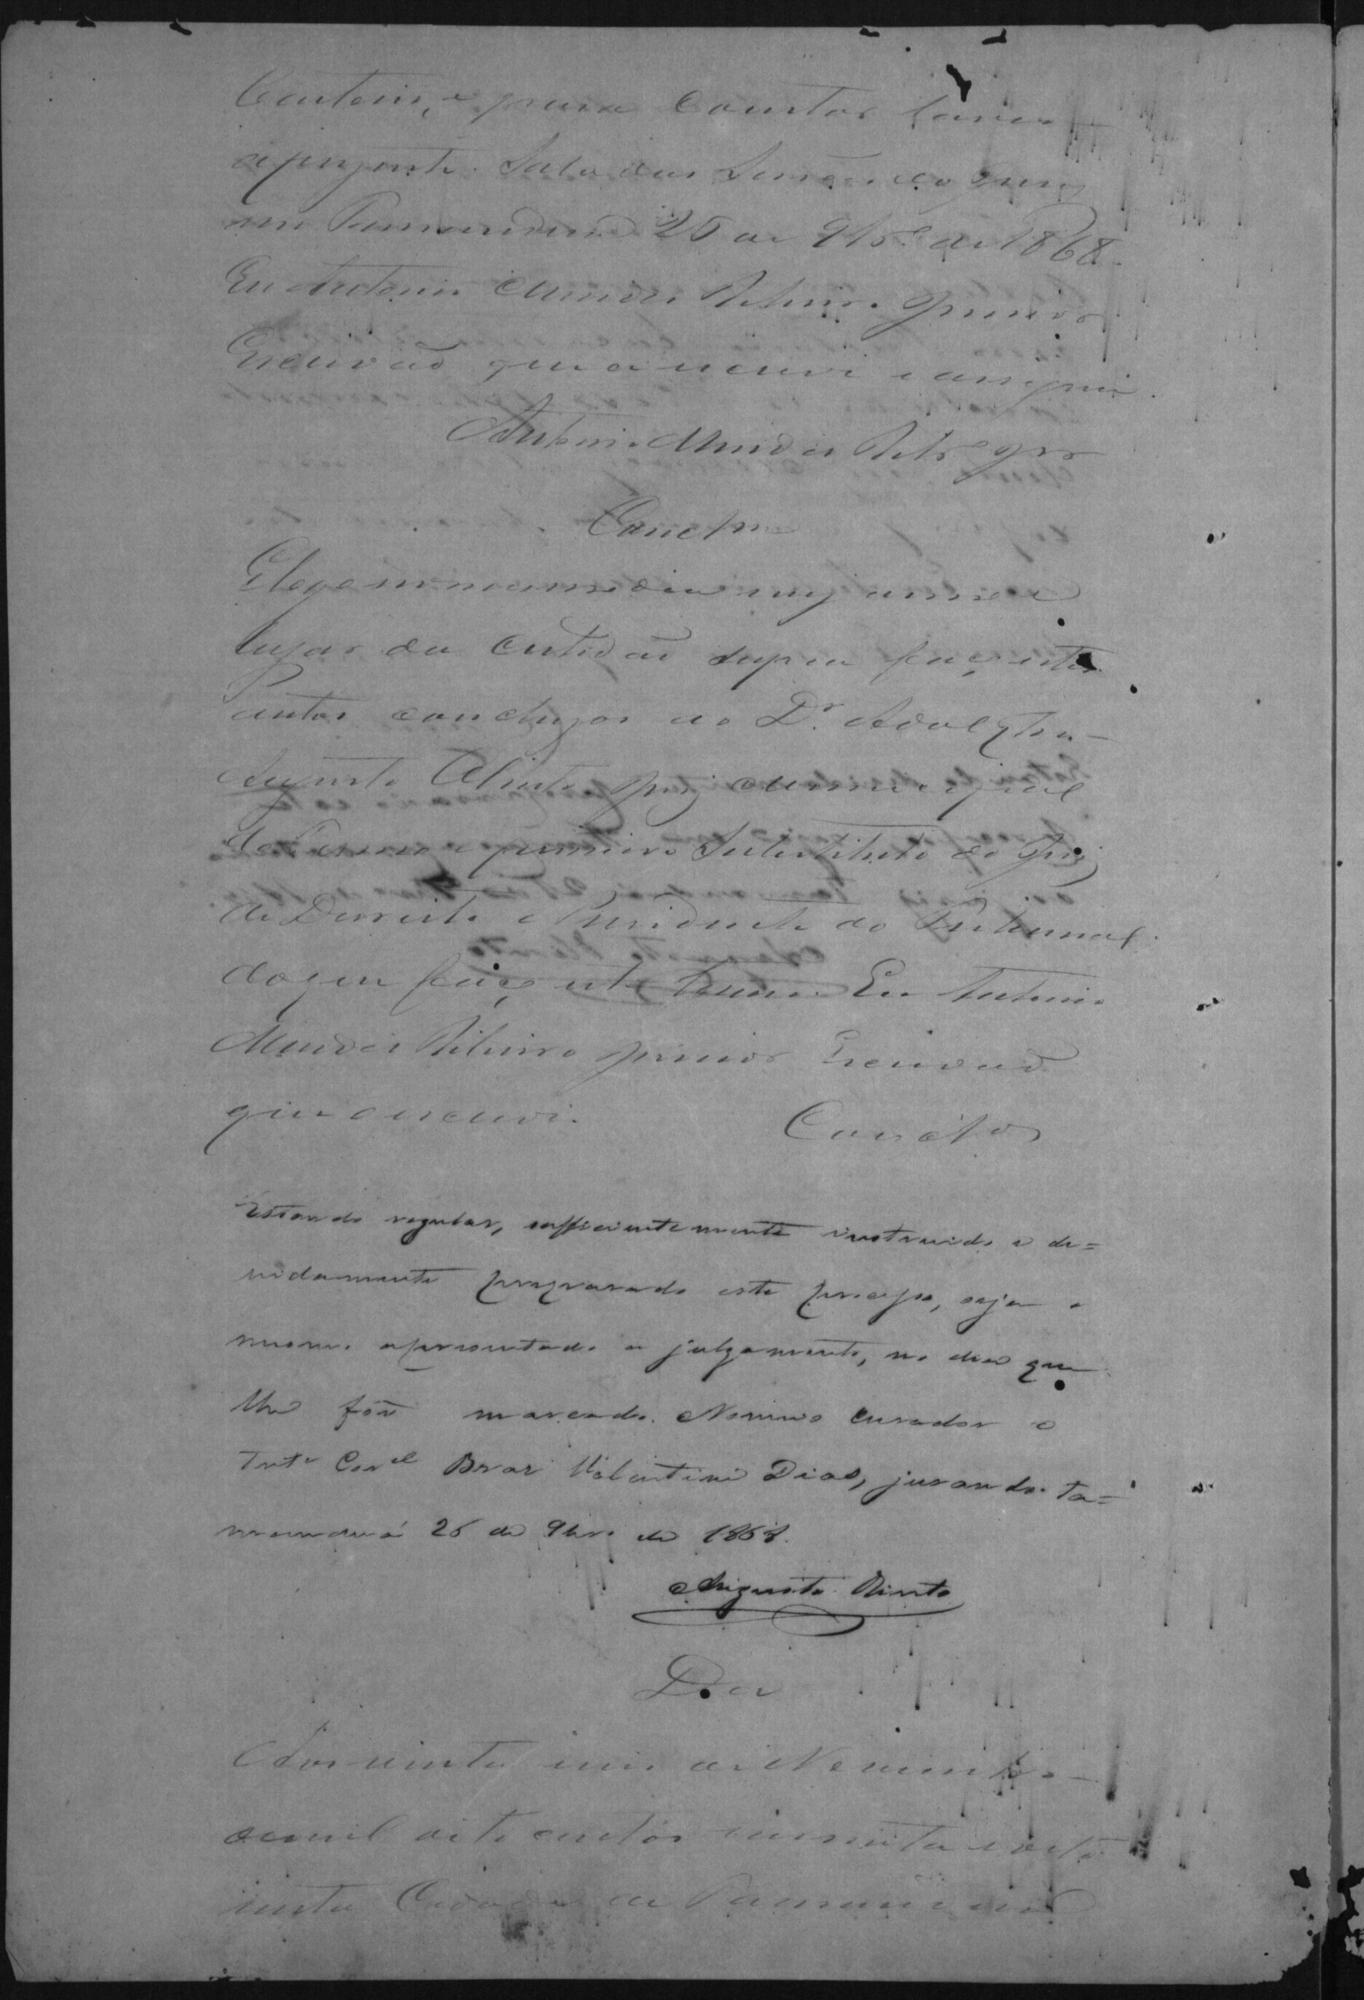 Contem, e para Constar lavro
a prezente. Sala das Sessões do Jury
em Tamanduá 25 de 9br.º de 1868.
Eu Antonio Mendes Ribeiro Junior
Escrivão que a escrevi e assignei.
Antonio Mendes Ribr.º Jor
Concl.m
E logo no mesmo dia mez anno e
lugar da Certidão supra faço estes
autos conclusos ao D.r Adolpho
Augusto Olinto Juiz Municipal
do Termo e primeiro Substituto do Juiz
de Dereito e Prezidente do Tribunal
do que faço este termo Eu Antonio
Mendes Ribeiro Junior Escrivão
que o escrevi. Conclos
Estando regular, sufficientemente instruido e de=
vidamente preparado este processo, seja o
mesmo apresentado a julgamento, no dia que
lhe fôr marcado. Nomeio curador o
Tnte Corel Braz Valentim Dias, jurando. Ta=
manduá 26 de 9bro de 1868.
Augusto Olinto
D.a
Aos vinte seis de Novembro
de mil oito centos sessenta e oito
nesta Cidade de Tamanduá